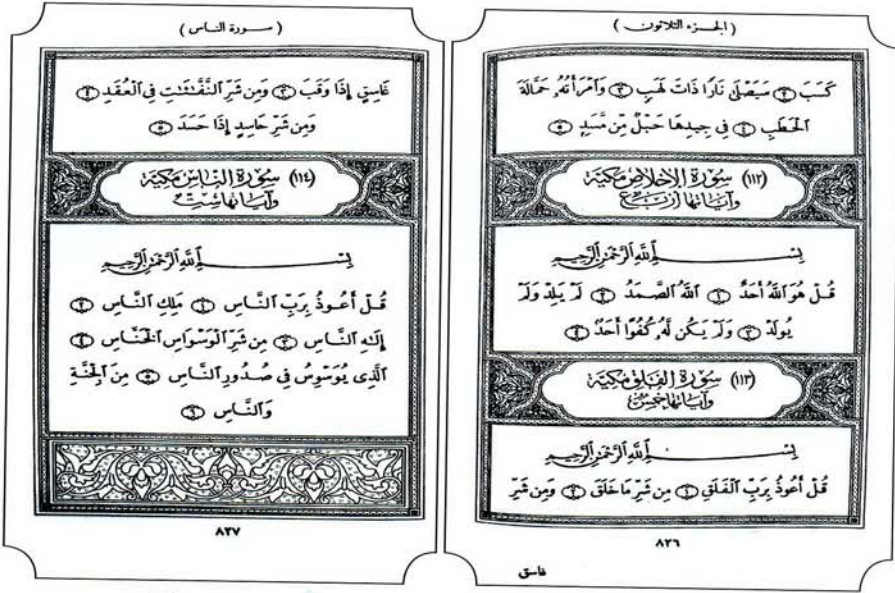 ( الجزء الثلاثون )
كَسَبَ ٢ سَيَصْلَىٰ نَارًا ذَاتَ لَهَبٍ ٣ وَٱمْرَأَتُهُۥ حَمَّالَةَ
ٱلْحَطَبِ ٤ فِى جِيدِهَا حَبْلٌ مِّن مَّسَدٍ ٥
(١١٢) سُورَةُ الإِخْلَاصِ مَكِّيَّة
وَآيَاتُهَا أَرْبَعٌ
بِسْمِ ٱللَّهِ ٱلرَّحْمَٰنِ ٱلرَّحِيمِ
قُلْ هُوَ ٱللَّهُ أَحَدٌ ١ ٱللَّهُ ٱلصَّمَدُ ٢ لَمْ يَلِدْ وَلَمْ
يُولَدْ ٣ وَلَمْ يَكُن لَّهُۥ كُفُوًا أَحَدٌۢ ٤
(١١٣) سُورَةُ الفَلَقِ مَكِّيَّة
وَآيَاتُهَا خَمْسٌ
بِسْمِ ٱللَّهِ ٱلرَّحْمَٰنِ ٱلرَّحِيمِ
قُلْ أَعُوذُ بِرَبِّ ٱلْفَلَقِ ١ مِن شَرِّ مَا خَلَقَ ٢ وَمِن شَرِّ
٨٢٦
غاسق
( سورة الناس )
غَاسِقٍ إِذَا وَقَبَ ٣ وَمِن شَرِّ ٱلنَّفَّٰثَٰتِ فِى ٱلْعُقَدِ ٤
وَمِن شَرِّ حَاسِدٍ إِذَا حَسَدَ ٥
(١١٤) سُورَةُ النَّاسِ مَكِّيَّة
وَآيَاتُهَا سِتٌّ
بِسْمِ ٱللَّهِ ٱلرَّحْمَٰنِ ٱلرَّحِيمِ
قُلْ أَعُوذُ بِرَبِّ ٱلنَّاسِ ١ مَلِكِ ٱلنَّاسِ ٢
إِلَٰهِ ٱلنَّاسِ ٣ مِن شَرِّ ٱلْوَسْوَاسِ ٱلْخَنَّاسِ ٤
ٱلَّذِى يُوَسْوِسُ فِى صُدُورِ ٱلنَّاسِ ٥ مِنَ ٱلْجِنَّةِ
وَٱلنَّاسِ ٦
٨٢٧